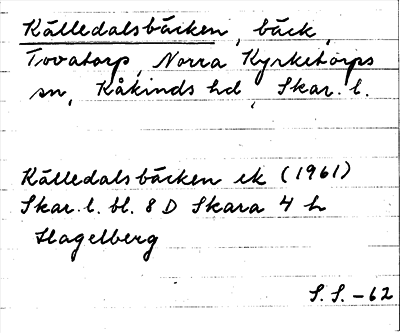 Källedalsbäcken, bäck,
Tovatorp, Norra Kyrketorps
sn, Kåkinds hd, Skar. l.
Källedalsbäcken ek (1961)
Skar. l. bl. 8 D Skara 4 h
Hagelberg
S. S. -62